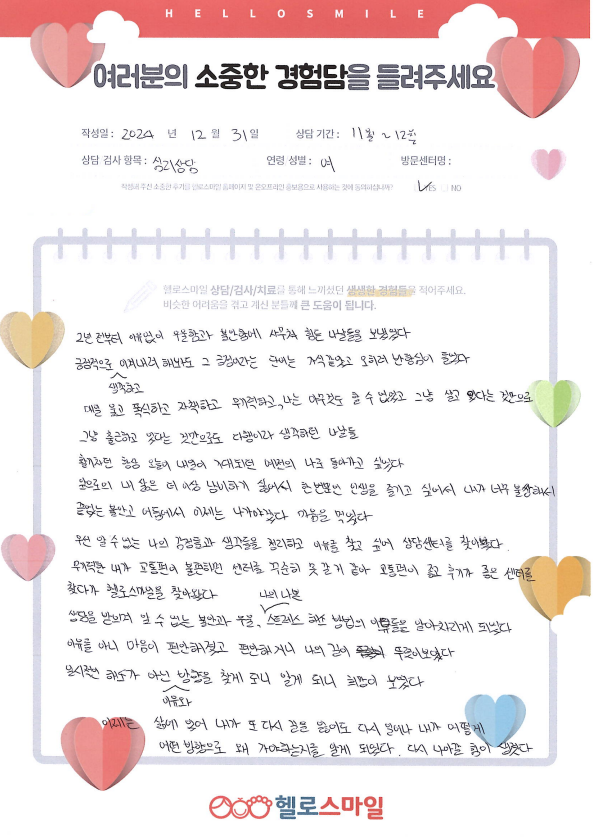 HELLOSMILE
여러분의 소중한 경험담을 들려주세요
작성일 : 2024 년 12 월 31 일 상담 기간 : 11월 ~ 12월
상담 검사 항목 : 심리상담 연령 성별 : 여 방문센터명 :
작성해주신 소중한 후기를 헬로스마일 홈페이지 및 온오프라인 홍보용으로 사용하는 것에 동의하십니까? YES NO
헬로스마일 상담/검사/치료를 통해 느끼셨던 생생한 경험들을 적어주세요.
비슷한 어려움을 겪고 계신 분들께 큰 도움이 됩니다.
2년 전부터 이유없이 우울함과 불안함에 사무쳐 힘든 나날들을 보냈었다
긍정적으로 이겨내려 해봐도 그 긍정이라는 단어는 가식같았고 오히려 반항심이 들었다
생각하고
매일 울고 폭식하고 자책하고 무기력하고, 나는 아무것도 할 수 없었고 그냥 살고 있다는 것만으로
그냥 출근하고 있다는 것만으로도 다행이라 생각하던 나날들
활기차던 항상 오늘이 내일이 기대되던 예전의 나로 돌아가고 싶었다
앞으로의 내 삶은 더 이상 낭비하기 싫어서 한번뿐인 인생을 즐기고 싶어서 내가 너무 불쌍해서
끝없는 불안과 어둠에서 이제는 나가야겠다 마음을 먹었다
우선 알 수 없는 나의 감정들과 생각들을 정리하고 이유를 찾고 싶어 상담센터를 찾아봤다.
무기력한 내가 교통편이 불편하면 센터를 꾸준히 못 갈거 같아 교통편이 좋고 후기가 좋은 센터를
찾다가 헬로스마일을 찾아왔다
나의 나쁜
상담을 받으며 알 수 없는 불안과 우울, 스트레스 해소 방법의 이유들을 알아차리게 되었다
이유를 아니 마음이 편안해졌고 편안해지니 나의 길이 뚜렷이보였다
일시적인 해소가 아닌 방향을 찾게 되니 알게 되니 희망이 보였다
이유와
이제는 삶에 있어 내가 또 다시 길을 잃어도 다시 일어나 내가 어떻게
어떤 방향으로 왜 가야하는지를 알게 되었다. 다시 나아갈 힘이 생겼다
헬로스마일